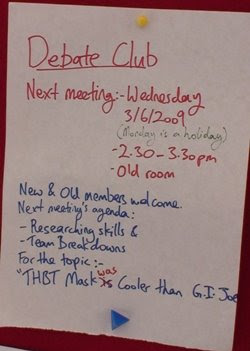 Debate Club
Next meeting:- Wednesday
3/6/2009
(Monday is a holiday)
- 2.30 - 3.30pm
- Old room
New & Old members welcome.
Next meeting's agenda:
- Researching skills &
- Team Breakdowns
For the topic :-
was
"THBT Mask is Cooler than G.I. Joe